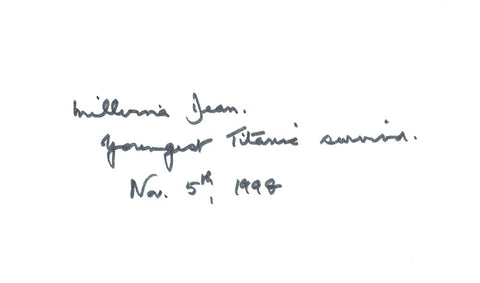 Millvina Dean.
Youngest Titanic survivor.
Nov. 5th, 1998